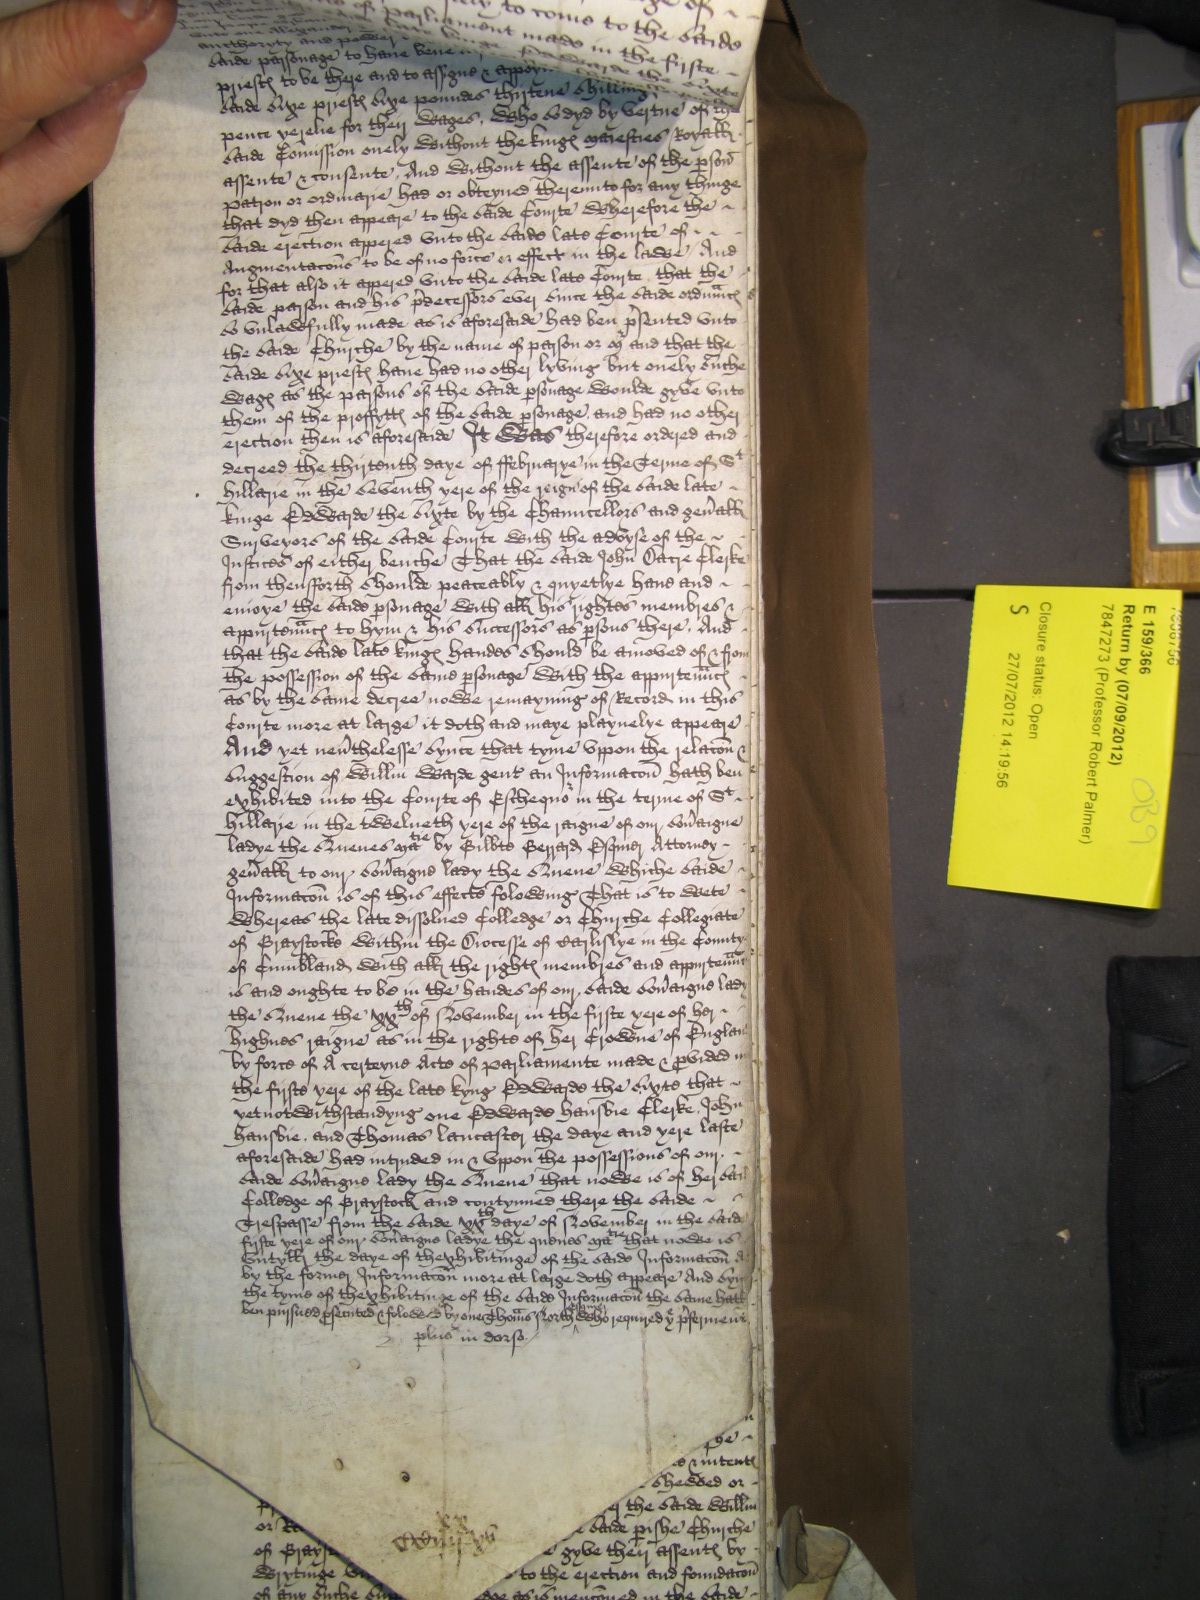 ge of
ly to come to the saide
of parliament made in the firste
aucthoryty and power
saide parsonage to have bene
priestꝭ to be there and to assigne & appoyn
saide sixe priestꝭ sixe poundes thirtene shillingꝭ
pence yerelie for their wages, Who so dyd by vertue of the
saide Comission onely without the kingꝭ maiesties Royall
assente & consente, And without the assente of the pson
patron or ordinarie had or obteyned thereunto for any thinge
that dyd then appeare to the saide Courte wherefore the
saide erection appered unto the saide late Courte of
Augmentacōns to be of no force or effect in the lawe, And
for that also it appered unto the saide late Courte, that the
saide parson and his p̄decessors ever since the saide ordinnce
so unlawfully made as is aforesaide had ben p̄sented unto
the saide Churche by the name of parson or and that the
saide sixe priestꝭ have had no other lyving but onely suche
wagꝭ as the parsons of the saide psonage woulde gyve unto
them of the proffyttꝭ of the saide psonage, and had no other
erection then is aforesaide It was therefore ordered and
decreed the thirtenth daye of ffebruarye in the Terme of St
hillarie in the seventh yere of the reign of the saide late
kinge Edwarde the sixte by the Chauncellors and gen̄all
Surveyors of the saide Courte with the advyse of the
Justices of either benche That the saide John Dacre Clerke
from thensforth shoulde peaceably & quyetlye have and
enioye the saide psonage with all his rightes membres &
appurtennces to hym & his successors as psons there, And
that the saide late kingꝭ handes should be amoved of & from
the possession of the same psonage with the appurtennces
as by the same decree nowe remayning of Record in this
Courte more at large it doth and maye playnelye appeare
And yet nev̄thelesse synce that tyme uppon the relacōn &
suggestion of Willm Warde gent an Informacōn hath ben
exhibited into the Courte of Eschequor in the terme of St
hillarie in the twelueth yere of the raigne of our sov̄aigne
ladye the Quenes matie by Gilbte Gerrard Esquier Attorney
gen̄all to our sov̄aigne lady the Quene whiche saide
Informacōn is of this effecte folowing That is to wete
Whereas the late dissolued Colledge or Churche Collegiate
of Graystocke within the Diocesse of Carlislye in the County
of Cumbland with all the rightꝭ membres and appurtennces
is and oughte to be in the handes of our saide sov̄aigne lady
the Quene the xxth of November in the firste yere of her
highnes raigne as in the righte of her Crowne of Englan
by force of A certeyne Acte of parliamente made & p̄vided in
the firste yere of the late kyng Edwarde the sixte that
yet notwithstandyng one Edwarde hansbie Clerke, John
hansbie, and Thomas lancaster the daye and yere laste
aforesaide had intruded in & uppon the possessions of our
saide sov̄aigne lady the Quene that nowe is of her sai
Colledge of Graystock and contynued there the saide
Trespasse from the saide xxth daye of November in the saide
firste yere of our sov̄aigne ladye the quenes matie that nowe is
untyll the daye of thexhibitinge of the saide Informacōn as
by the former Informacōn more at large doth appeare And syn
the tyme of thexhibitinge of the saide Informacōn the same hath
ben pursued psecuted & folowed by one Thom̄s North who required yͤ p̄ferment
plus in dorso
ge
& intentꝭ
shewed or
the saide Willm
or saide pishe Churche
of Grayst gyve their assentꝭ by
wrytinge to the erection and foundacōn
of any suche as is mencōned in the saide
E 159/366
Return by (07/09/2012)
7847273 (Professor Robert Palmer)
Closure status: Open
S 27/07/2012 14:19:56
OB9